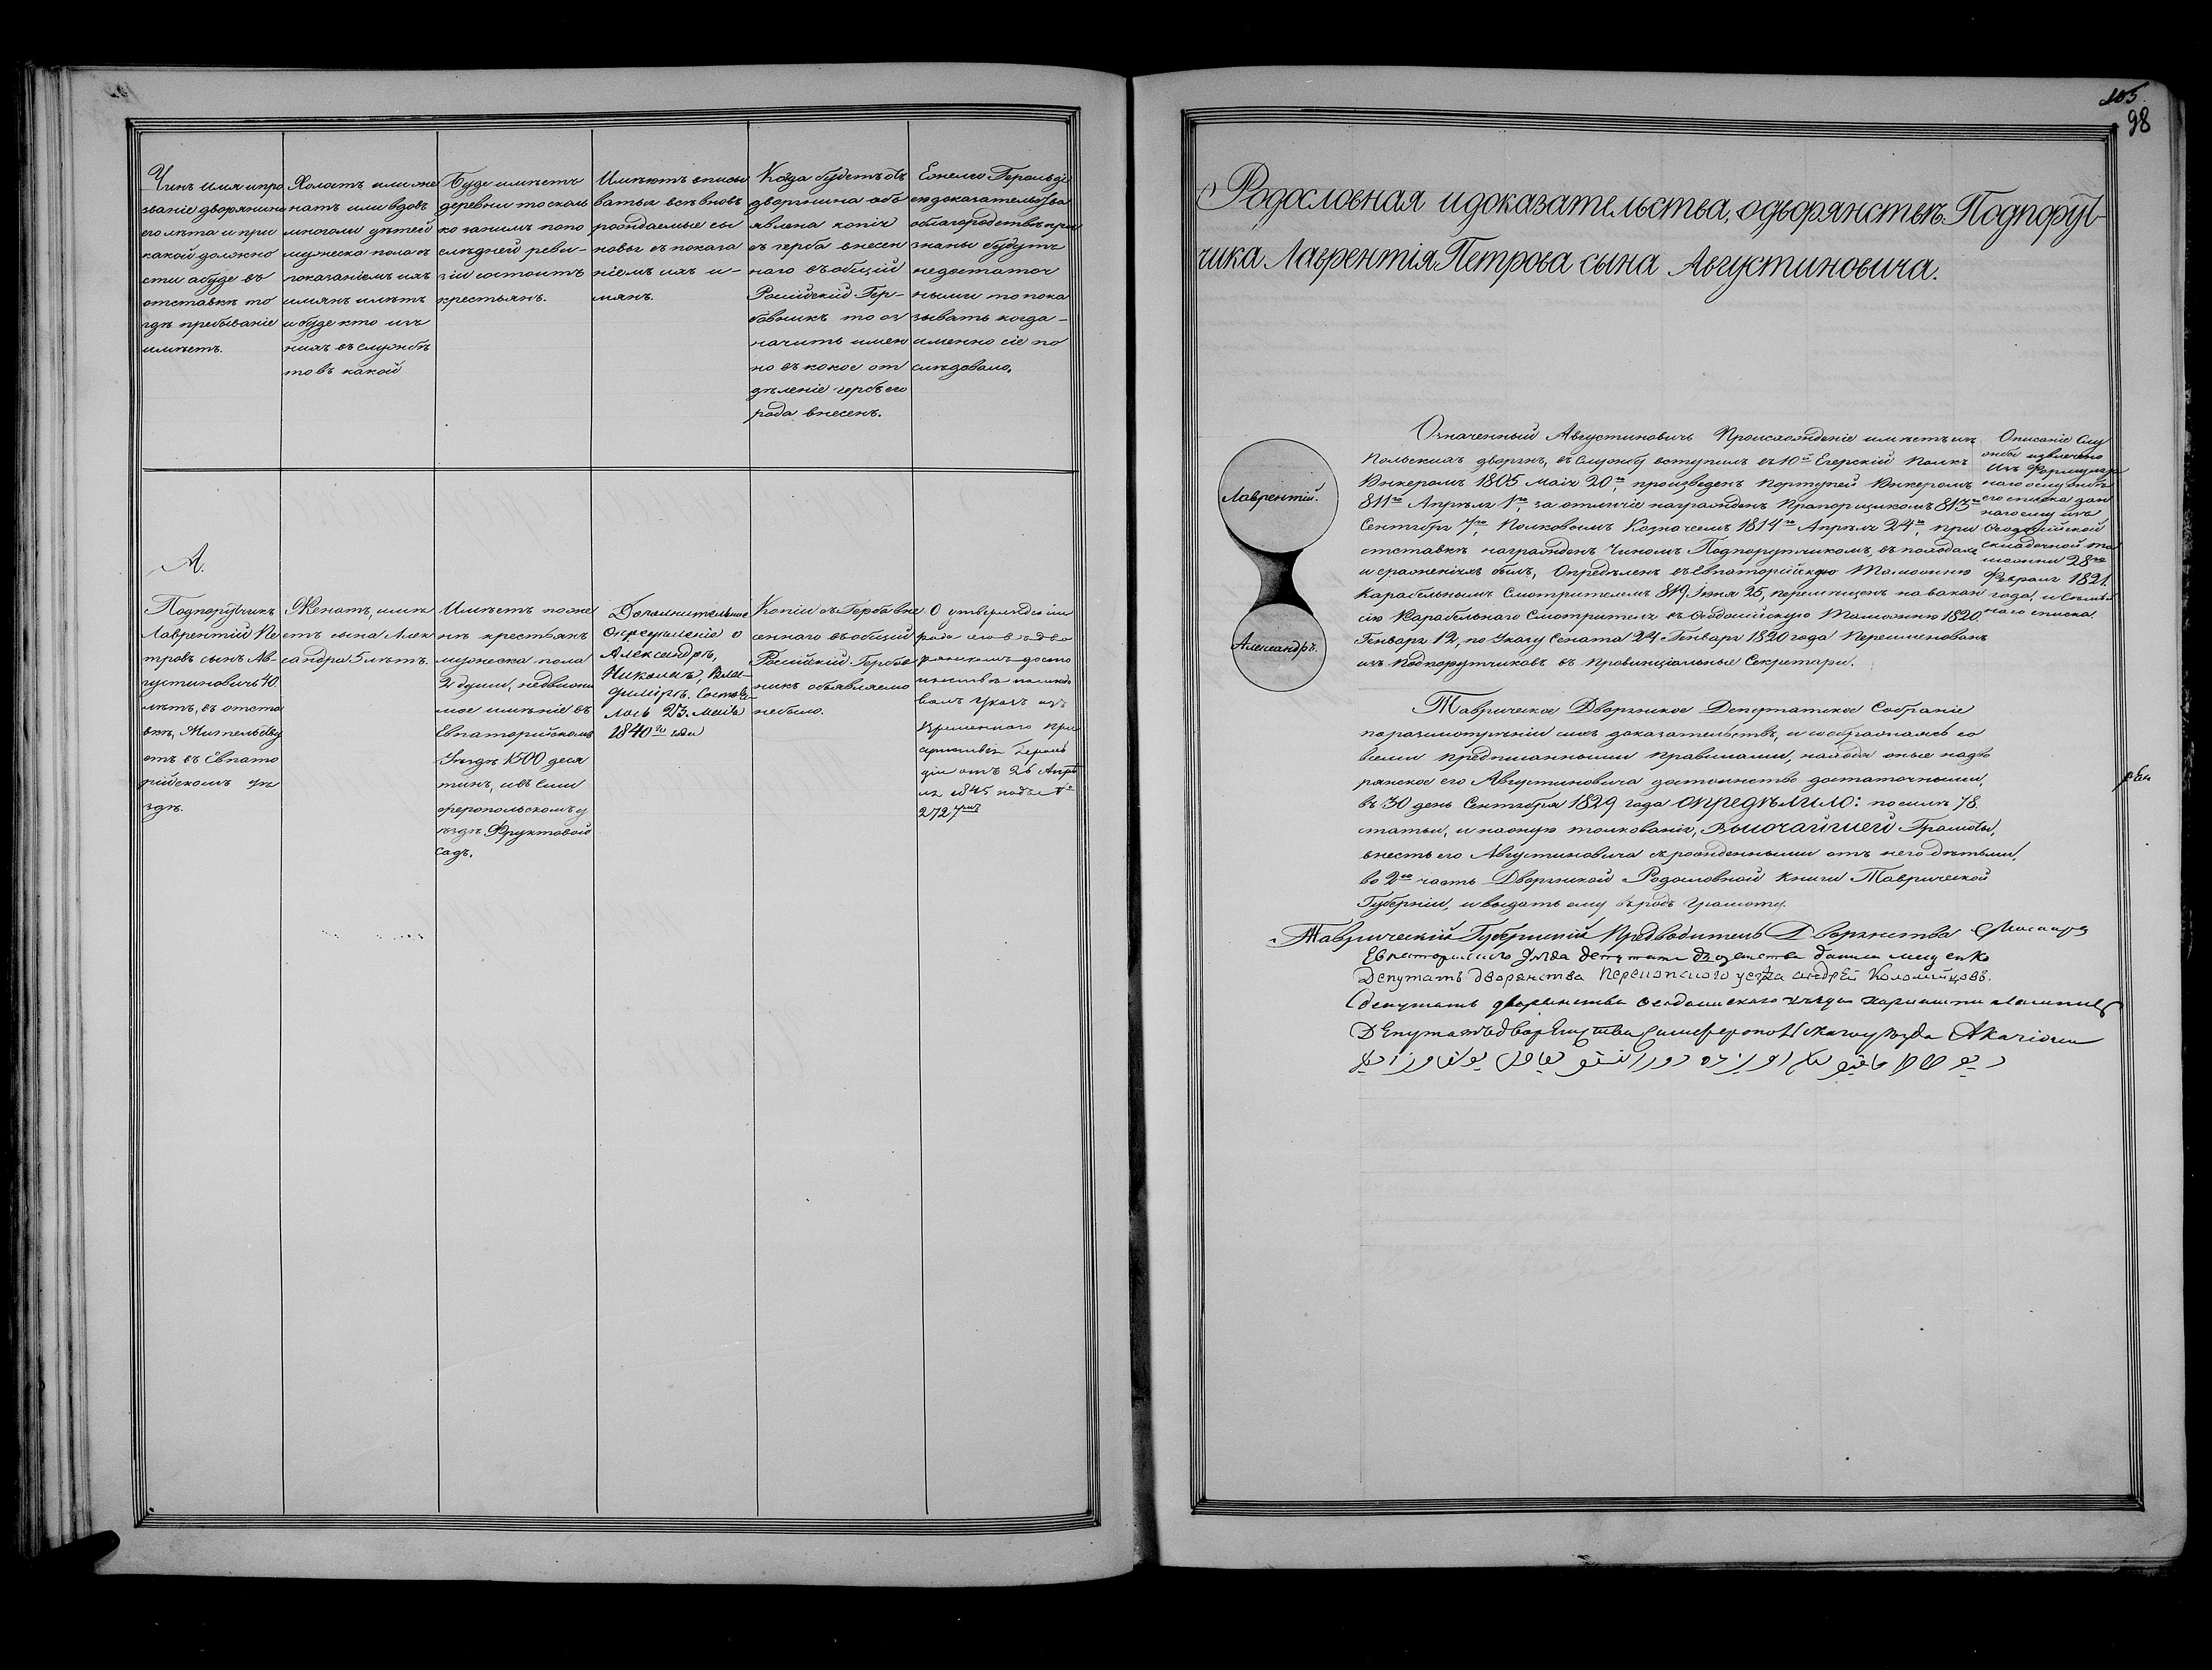 Чинъ имя ипро
званіе дворянина
его лѣта и при
какой должно
сти абуде въ
отставкѣ то
гдѣ пребываніе
имѣетъ.
Холостъ или же
натъ или вдовъ
многоли дѣтей
мужеска пола съ
показаніемъ ихъ
имянъ имѣетъ
и буде кто изъ
нихъ въ службѣ
то въ какой
Буде имѣетъ
деревни то сколь
ко занимъ попо
слѣдней реви-
зіи состоитъ
крестьянъ.
Имѣютъ вписы
ваться всѣ вновь
рождаемые сы
новья съ показа
ніемъ ихъ и-
мянъ.
Когда будетъ отъ
дворянина объ
явлена копія
съ герба внесен
наго въ общій
Россійскій Гер-
бовникъ то оз
начить имен
но въ какое от
дѣленіе гербъ его
рода внесенъ.
Ежели Герольдіе
ю доказательства
облагородствѣ при
знаны будутъ
недостаточ
ными то пока
зывать когда-
именно сіе по
слѣдовало.
А.
Подпорутчикъ
Лаврентій Пе
тровъ сынъ Ав-
густиновичъ 40.
лѣтъ, въ отста
вкѣ, Жительству
етъ въ Евпато
рійскомъ уѣ
здѣ.
Женатъ, имѣ
етъ сына Алек
сандра 5 лѣтъ.
Имѣетъ по же
нѣ крестьянъ
мужеска пола
2 души, недвижи
мое имѣніе въ
Евпаторійскомъ
Уѣздѣ 1500 деся
тинъ, и въ Сим
феропольскомъ у
ѣздѣ Фруктовой
садъ.
Дополнительное
Опредѣленіе о
Александрѣ,
Николаѣ, Вла-
димірѣ. Состоя-
лось 23. Маія
1840го года
Копіи съ Герба вне
сеннаго въ общій
Россійскій Гербов
никъ объявляемо
небыло.
О утвержденіи
рода его въ дво
рянскомъ досто
инствѣ послѣдо
валъ Указъ изъ
Временнаго При
сутствія Героль
діи отъ 26 Апрѣ
ля 1845 подъ №
2727мъ
105.
98
Родословная и доказательства, о дворянствѣ Подпорут-
чика Лаврентія Петрова сына Августиновича.
Лаврентій.
Александръ.
Означенный Августиновичь Происхожденіе имѣетъ изъ
Польскихъ дворянъ, въ Службу вступилъ въ 10й Егерскій Полкъ
Юнкеромъ 1805 маія 20го, произведенъ Портупей Юнкеромъ
811го Апрѣля 1го, за отличіе награжденъ Прапорщикомъ 813го
Сентября 7го, Полковымъ Казначеемъ 1814го Апрѣля 24го, при
отставкѣ награжденъ Чиномъ Подпорутчикомъ, въ походахъ
и сраженіяхъ былъ, Опредѣленъ въ Евпаторійскую Таможню
Карабельнымъ Смотрителемъ 819. Іюня 25, перемѣщенъ на вакан
сію Карабельнаго Смотрителя въ Ѳеодосійскую Таможню 1820.
Генваря 12, по Указу Сената 24 Генваря 1820 года Переименованъ
изъ Подпорутчиковъ въ Провинціальные Секретари.
Описаніе Слу
жбы извлечено
Изъ Формуляр
наго о службѣ
его списка дан
наго ему изъ
Ѳеодосійской
складочной та
можни 28го
Февраля 1821.
года,
наго списка.
Таврическое Дворянское Депутатское Собраніе
поразсмотрѣніи сихъ доказательствъ, и сообразжаясь со
всеми предписанными правилами, находя оные на дво
рянское его Августиновича достоинство достаточными,
въ 30 день Сентября 1829 года опредѣлило: по силѣ 78.
статьи, и на оную толкованія, Высочайшей Грамоты,
внесть его Августиновича съ рожденными отъ него дѣтьми,
во 2ю часть Дворянской Родословной Книги Таврической
Губерніи, и выдать ему въ родъ Грамоту.
Таврическій Губернскій Предводитель Дворянства
Евпаторійскаго Уѣзда депутатъ дворянства
Депутатъ дворянства Перекопскаго уезда андрей Коломійцовъ.
депутатъ дворянства Ѳеодосійскаго уѣзда
Депутатъ дворянства Симферопольскаго уѣзда